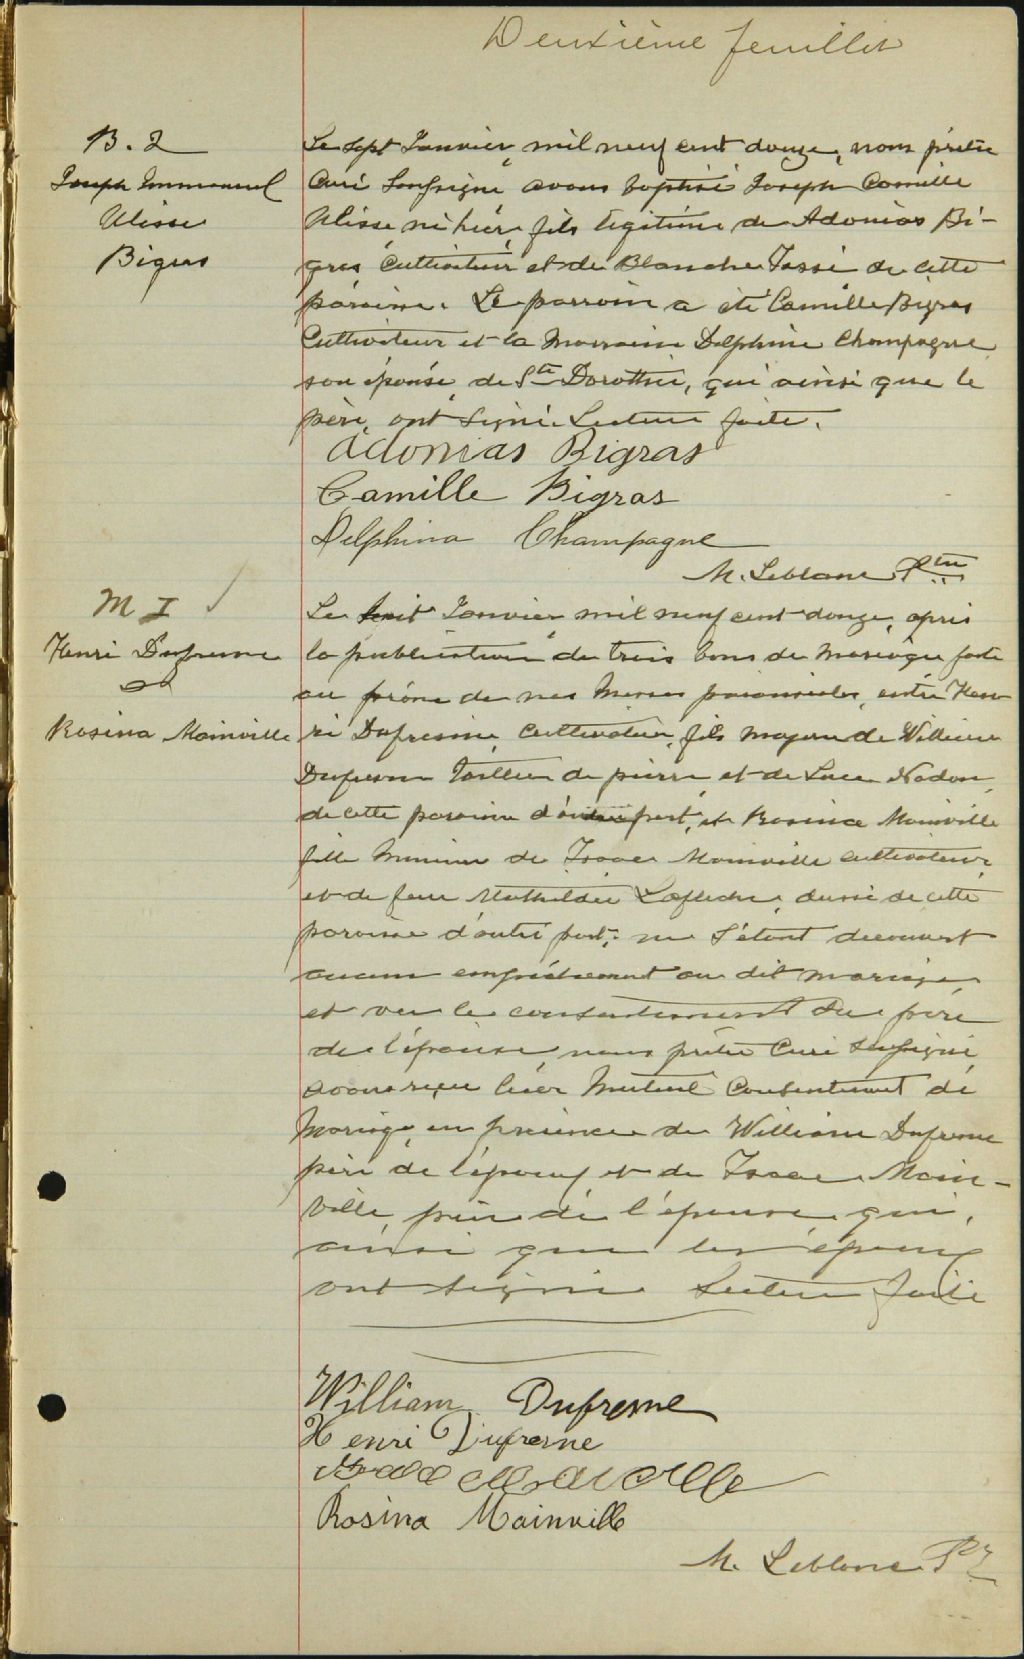 Deuxième feuillet
B. 2
Joseph Emmanuel
Ulisse
Bigras
Le sept Janvier mil neuf cent douze, nous prêtre
Curé Soussigné avons baptisé Joseph Camille
Ulisse né hier, fils légitime de Adonias Bi-
gras Cultivateur et de Blanche Tassé de cette
paroisse. Le parrain a été Camille Bigras
Cultivateur et la Marraine Delphine Champagne
son épouse, de Ste Dorothée, qui ainsi que le
père, ont signé. Lecture faite.
Adonias Bigras
Camille Bigras
Delphina Champagne
M. Leblanc Ptre
M I
Henri Dufresne
et
Rosina Mainville
Le huit Janvier mil neuf cent douze, après
la publication de trois bans de Mariage faite
au prône de nos Messes paroissiales, entre Hen
ri Dufresne, Cultivateur, fils majeur de William
Dufresne tailleur de pierre et de Luce Nadon,
de cette paroisse d'une part, et Rosina Mainville
fille Mineure de Isaac Mainville cultivateur,
et de feue Mathildée Laflèche, aussi de cette
paroisse d'autre part; ne s'étant découvert
aucun empêchement au dit mariage,
et vu le consentement du père
de l'épouse nous prêtre Curé soussigné
avons reçu leur Mutuel Consentement de
Mariage en présence de William Dufresne
père de l'époux et de Isaac Main-
ville, père de l'épouse qui,
ainsi que les époux
ont signé Lecture faite
William Dufresne
Henri Dufresne
Mainville
Rosina Mainville
M. Leblanc Ptr